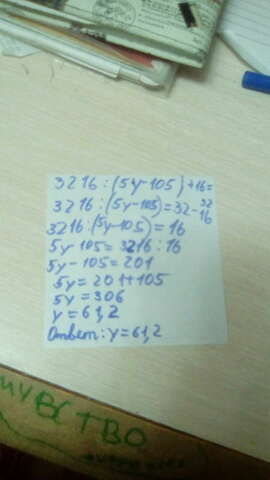 3216 : (5y-105) + 16 = 32
3216 : (5y-105) = 32-16
3216 : (5y-105) = 16
5y-105 = 3216 : 16
5y-105 = 201
5y = 201+105
5y = 306
y = 61,2
Ответ: y = 61,2
ЧУВСТВО